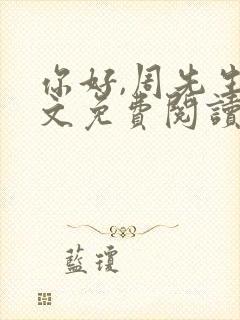 你好,周先生
文免費閱讀
藍瓊